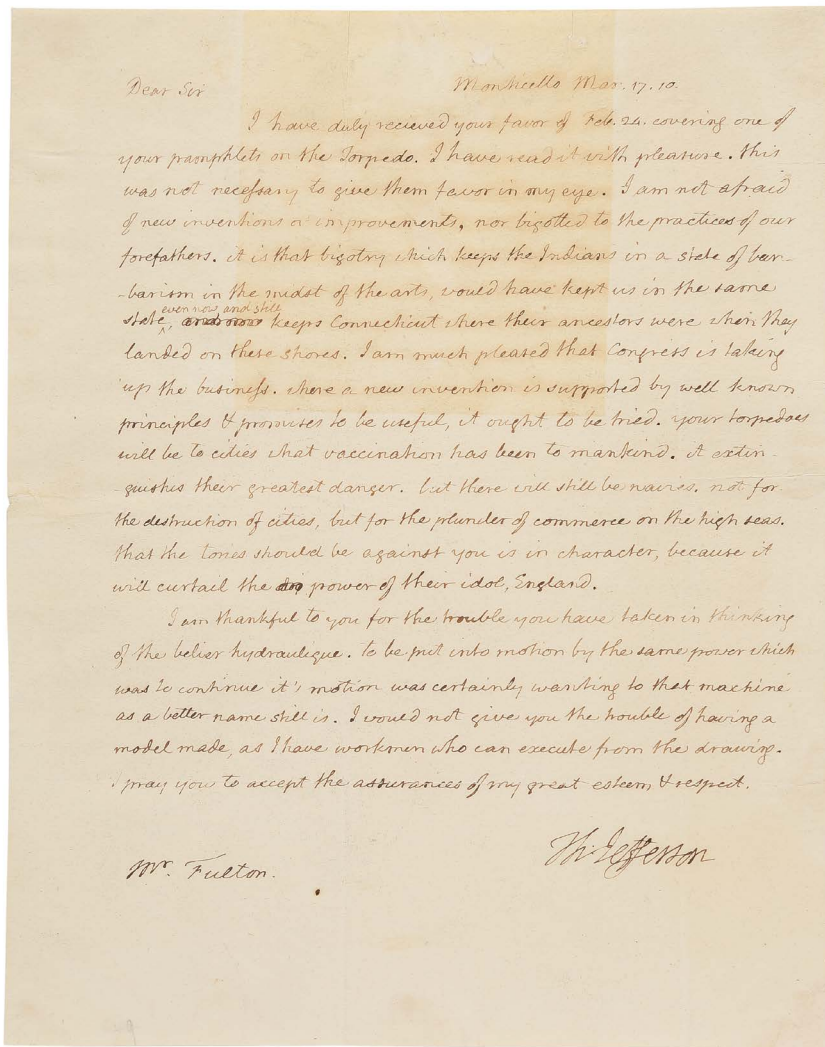 Dear Sir Monticello Mar. 17. 10.
I have duly recieved your favor of Feb. 24. covering one of
your pamphlets on the Torpedo. I have read it with pleasure. this
was not necessary to give them favor in my eye. I am not afraid
of new inventions or improvements, nor bigotted to the practices of our
forefathers. it is that bigotry which keeps the Indians in a state of bar-
-barism in the midst of the arts, would have kept us in the same
even now and still
state, and now keeps Connecticut where their ancestors were when they
landed on these shores. I am much pleased that Congress is taking
up the business. where a new invention is supported by well known
principles & promises to be useful, it ought to be tried. your torpedoes
will be to cities what vaccination has been to mankind. it extin-
-guishes their greatest danger. but there will still be navies. not for
the destruction of cities, but for the plunder of commerce on the high seas.
that the tories should be against you is in character, because it
will curtail the power of their idol, England.
I am thankful to you for the trouble you have taken in thinking
of the belier hydraulique. to be put into motion by the same power which
was to continue it's motion was certainly wanting to that machine
as a better name still is. I would not give you the trouble of having a
model made, as I have workmen who can execute from the drawing.
I pray you to accept the assurances of my great esteem & respect.
Th: Jefferson
Mr. Fulton.